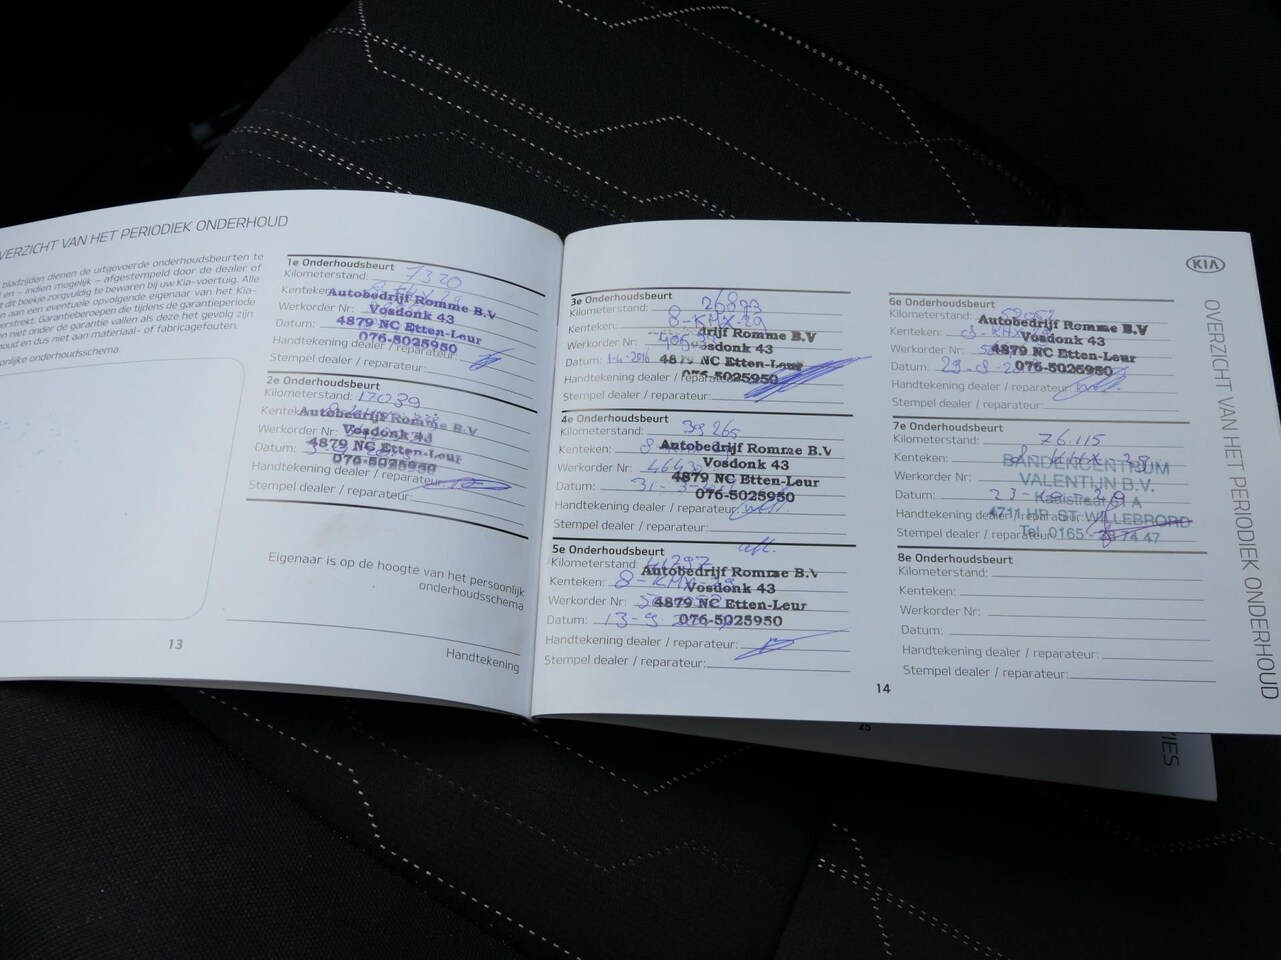 OVERZICHT VAN HET PERIODIEK ONDERHOUD
bladzijden dienen de uitgevoerde onderhoudsbeurten te
en – indien mogelijk – afgestempeld door de dealer of
dit boekje zorgvuldig te bewaren bij uw Kia-voertuig. Alle
aan een eventuele opvolgende eigenaar van het Kia-
verstrekt. Garantieberoepen die tijdens de garantieperiode
en niet onder de garantie vallen als deze het gevolg zijn
houd en dus niet aan materiaal- of fabricagefouten.
onderhoudsschema.
1e Onderhoudsbeurt
Kilometerstand: 7320
Kenteken:
Werkorder Nr:
Datum:
Handtekening dealer / reparateur:
Stempel dealer / reparateur:
Autobedrijf Romme B.V
Vosdonk 43
4879 NC Etten-Leur
076-5025950
2e Onderhoudsbeurt
Kilometerstand: 17039
Kenteken:
Werkorder Nr:
Datum:
Handtekening dealer / reparateur:
Stempel dealer / reparateur:
Autobedrijf Romme B.V
Vosdonk 43
4879 NC Etten-Leur
076-5025950
Eigenaar is op de hoogte van het persoonlijk
onderhoudsschema
Handtekening
13
3e Onderhoudsbeurt
Kilometerstand: 26873
Kenteken: 8-KHX-29
Werkorder Nr:
Datum: 1-4-2016
Handtekening dealer / reparateur:
Stempel dealer / reparateur:
drijf Romme B.V
Vosdonk 43
4879 NC Etten-Leur
076-5025950
4e Onderhoudsbeurt
Kilometerstand: 39265
Kenteken:
Werkorder Nr:
Datum:
Handtekening dealer / reparateur:
Stempel dealer / reparateur:
Autobedrijf Romme B.V
Vosdonk 43
4879 NC Etten-Leur
076-5025950
5e Onderhoudsbeurt
Kilometerstand:
Kenteken: 8-KHX-29
Werkorder Nr:
Datum: 13-9
Handtekening dealer / reparateur:
Stempel dealer / reparateur:
Autobedrijf Romme B.V
Vosdonk 43
4879 NC Etten-Leur
076-5025950
6e Onderhoudsbeurt
Kilometerstand:
Kenteken:
Werkorder Nr:
Datum:
Handtekening dealer / reparateur:
Stempel dealer / reparateur:
Autobedrijf Romme B.V
Vosdonk 43
4879 NC Etten-Leur
076-5025950
7e Onderhoudsbeurt
Kilometerstand: 76.115
Kenteken: 8-KHX-29
Werkorder Nr:
Datum:
Handtekening dealer / reparateur:
Stempel dealer / reparateur:
BANDENCENTRUM
VALENTIJN B.V.
Kaaistraat 61 A
4711 HP ST. WILLEBRORD
Tel. 0165
8e Onderhoudsbeurt
Kilometerstand:
Kenteken:
Werkorder Nr:
Datum:
Handtekening dealer / reparateur:
Stempel dealer / reparateur:
14
KIA
OVERZICHT VAN HET PERIODIEK ONDERHOUD
25